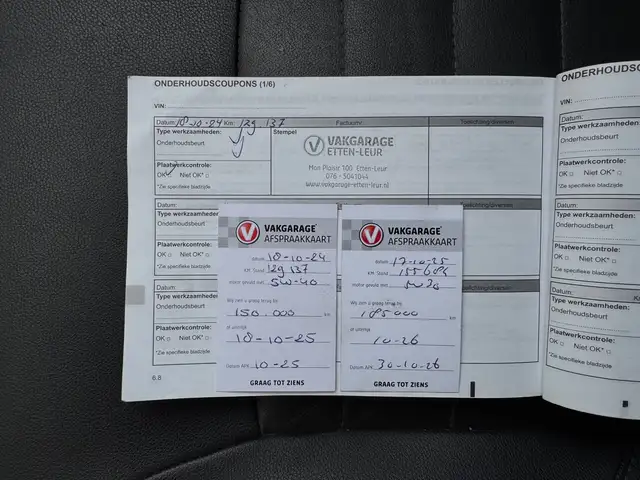 ONDERHOUDSCOUPONS (1/6)
VIN:
Datum: 18-10-24 Km: 129 137
Factuurnr:
Toelichting/diversen:
Type werkzaamheden:
Onderhoudsbeurt
Stempel
VAKGARAGE
ETTEN-LEUR
Mon Plaisir 100 Etten-Leur
076 - 5041044
www.vakgarage-etten-leur.nl
Plaatwerkcontrole:
OK Niet OK*
*Zie specifieke bladzijde
Datum:
Type werkzaamheden
Onderhoudsbeurt
Plaatwerkcontrole:
OK Niet OK*
*Zie specifieke bladzijde
Datum:
Type werkzaamheden
Onderhoudsbeurt
Plaatwerkcontrole:
OK Niet OK*
*Zie specifieke bladzijde
6.8
VAKGARAGE
AFSPRAAKKAART
datum 18-10-24
KM. Stand 129 137
motor gevuld met 5W-40
Wij zien u graag terug bij
150.000 km
of uiterlijk
18-10-25
Datum APK 10-25
GRAAG TOT ZIENS
VAKGARAGE
AFSPRAAKKAART
datum 17-10-25
KM. Stand
motor gevuld met 5W20
Wij zien u graag terug bij
185000 km
of uiterlijk
10-26
Datum APK 30-10-26
GRAAG TOT ZIENS
ONDERHOUDSC
VIN:
Datum:
Type werkzaamheden:
Onderhoudsbeurt
Plaatwerkcontrole:
OK Niet OK*
*Zie specifieke bladzijde
Datum:
Type werkzaamheden:
Onderhoudsbeurt
Plaatwerkcontrole:
OK Niet OK*
*Zie specifieke bladzijde
Datum:
Type werkzaamheden:
Onderhoudsbeurt
Plaatwerkcontrole:
OK Niet OK*
*Zie specifieke bladzijde